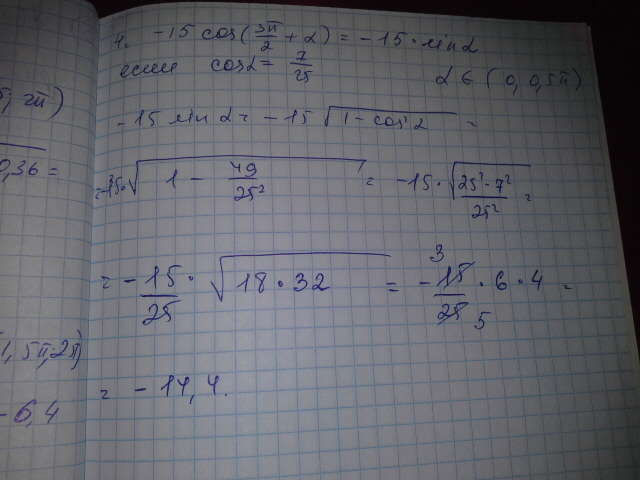 4. -15 cos(3π/2 + α) = -15 · sin α
если cos α = 7/25 α ∈ (0, 0,5π)
-15 sin α = -15 √(1 - cos² α) =
= -15 · √(1 - 49/25²) = -15 · √((25² - 7²)/25²) =
= -15/25 · √(18 · 32) = -15/25 · 6 · 4 =
3
5
= -14,4.
2π)
0,36 =
1,5π, 2π)
-6,4